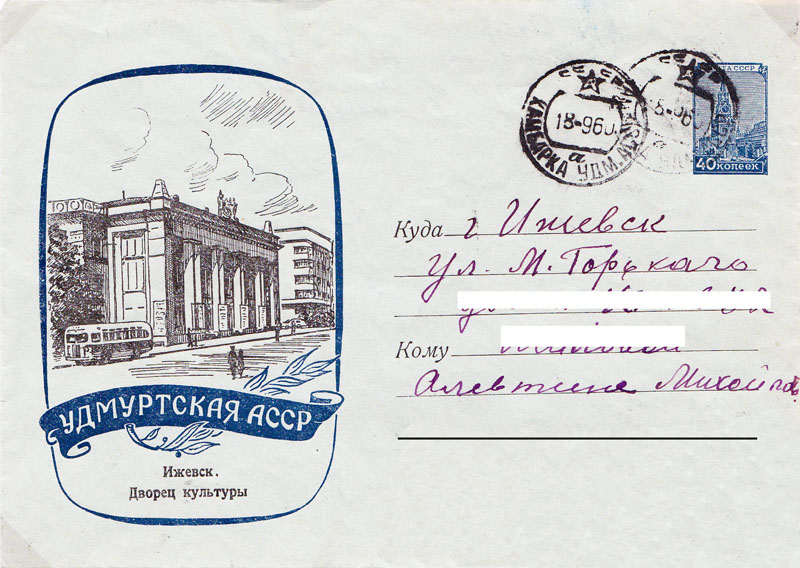 УДМУРТСКАЯ АССР
Ижевск.
Дворец культуры
СССР
40 копеек
КАМБАРКА УДМ. АССР
18-960
а
Куда г Ижевск
ул. М. Горькаго
Кому
Алевтине Михайл